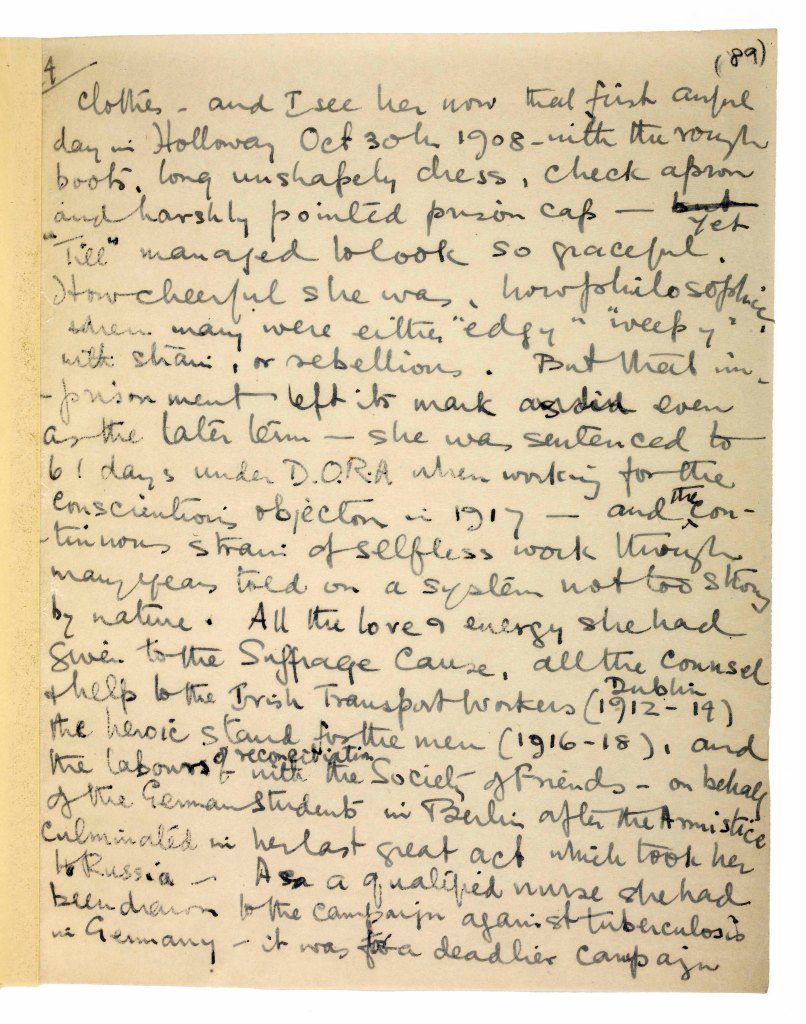 4
(89)
clothes - and I see her now that first awful
day in Holloway Oct 30th 1908 - with the rough
boots, long unshapely dress, check apron
and harshly pointed prison cap — but yet
"Till" managed to look so graceful.
How cheerful she was, how philosophic,
when many were either "edgy" "weepy"
with strain, or rebellious. But that im-
-prisonment left its mark as did even
as the later term — she was sentenced to
61 days under D.O.R.A when working for the
conscientious objectors in 1917 — and the con-
-tinuous strain of selfless work through
many years told on a system not too strong
by nature. All the love & energy she had
given to the Suffrage Cause, all the counsel
& help to the Irish Transport Workers (Dublin 1912 - 14)
the heroic stand for the men (1916-18), and
the labours of reconciliation with the Society of Friends - on behalf
of the German Students in Berlin after the Armistice
culminated in her last great act which took her
to Russia — As a qualified nurse she had
been drawn to the campaign against tuberculosis
in Germany - it was for a deadlier campaign